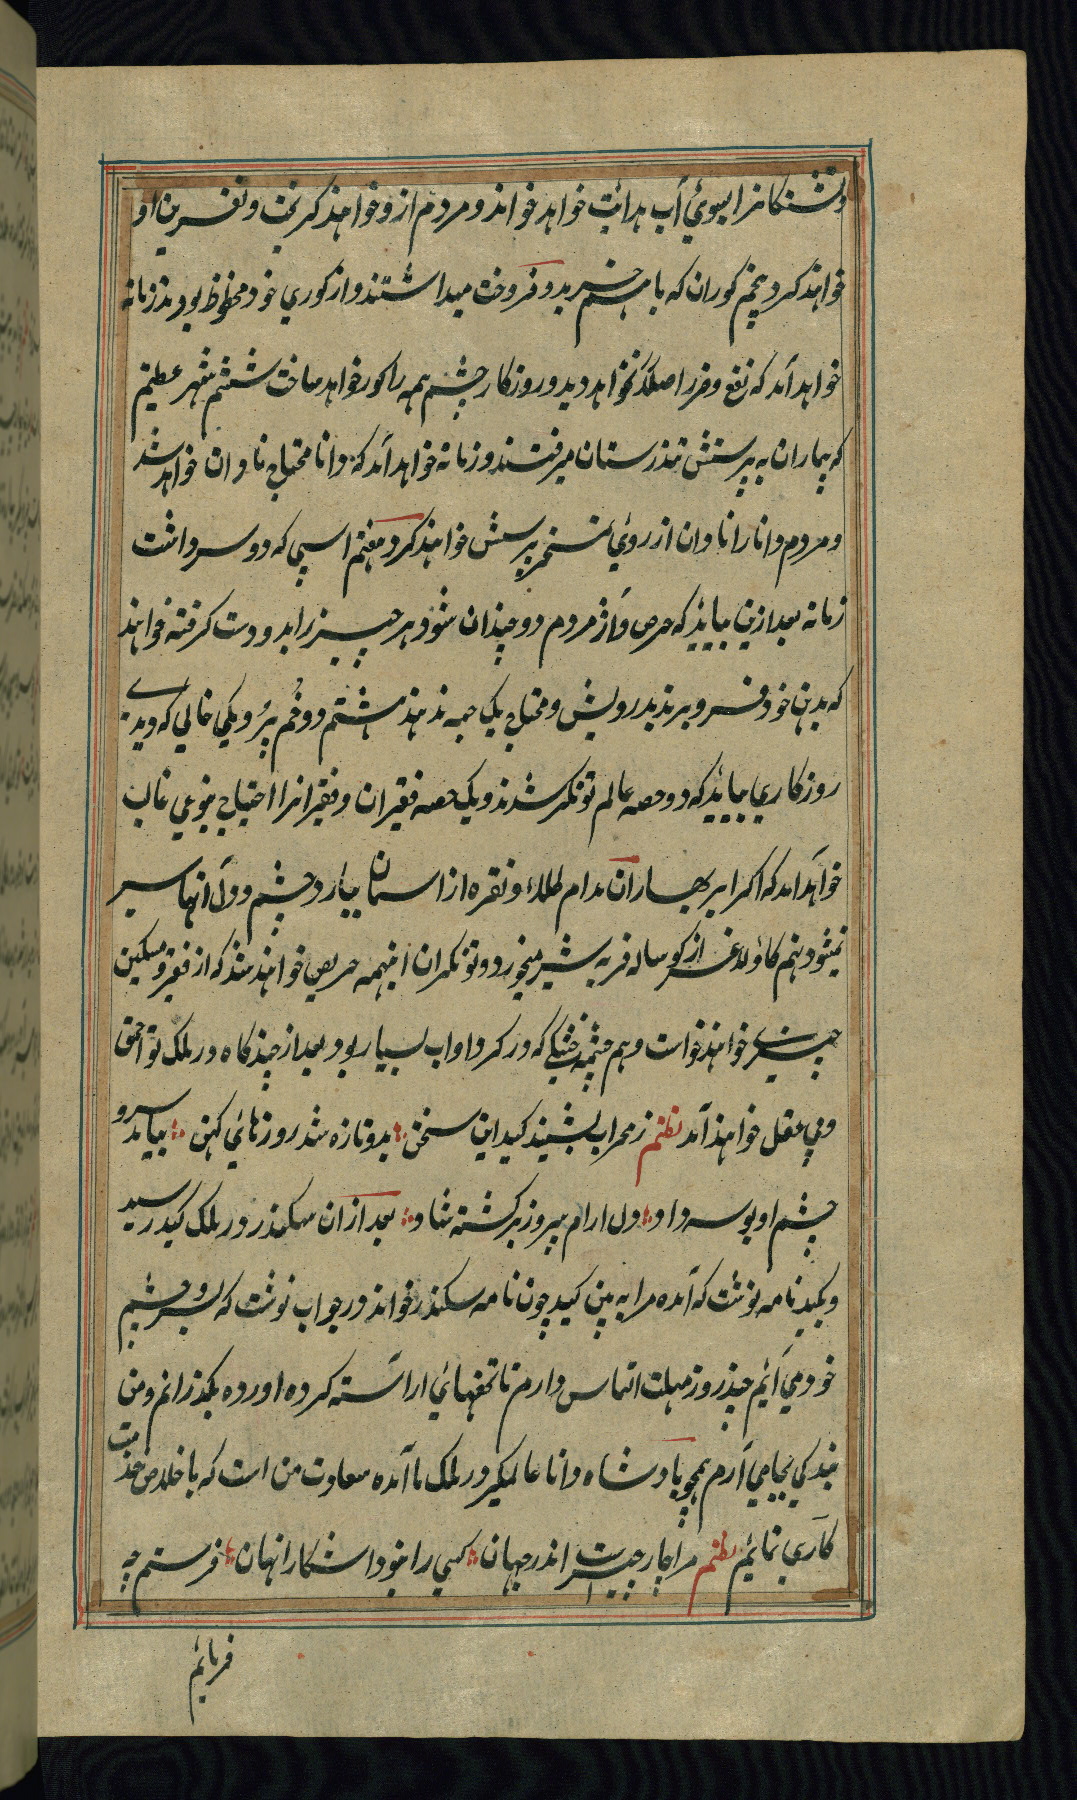 و تشنکانرا بسوئ آب هدائت خواهد خواند و مردم ازو خواهند کریخت و نفرین او
خواهند کرد پنجم کوران که باهم خرید و فروخت میداشتند و از کوری خود محظوظ بودند زمانه
خواهد آمد که نفع و ضرر اصلا نخواهد دید و روزکار چشم همه را کور خواهد ساخت ششم شهر عظیم
که بیماران به پرسش تندرستان میرفتند و زمانه خواهد آمد که دانا محتاج نادان خواهد شد
و مردم دانا را نادان از روئ تمسخر پرسش خواهند کرد هفتم اسپی که دو سر داشت
زمانه بعد ازین بیاید که حرص و آز مردم دوچندان شود هر چیز را بدو دست کرفته خواهند
که بدهن خود فرو برند بدرویش و محتاج یک حبه ندهند هشتم دو خم پر و یکی خالی که دیدے
روزکاری بیاید که دو حصه عالم تونکر شدند و یک حصه فقیران و فقیرانرا احتیاج بنوعی غالب
خواهد آمد که اکر ابر بهاران مدام طلاء و نقره از اسمان ببارد چشم و دل آنها سیر
نمیشود نهم کاو لاغر از کوساله فربه شیر میخورد و تونکران اینهمه حریص خواهند شد که از فقیر و مسکین
چیزے خواهند خواست دهم چشمه خشکے که در کرد او اب بسیار بود بعد از چند کاه در ملک تو احمق
و بی عقل خواهند آمد نظم ز مهراب بشنید کید این سخن بدو تازه شد روزهائ کهن بیامد سر و
چشم او بوسه داد دل ارام پیروز برکشته شاد بعد ازان سکندر در ملک کید رسید
و بکید نامه نوشت که آمده مرا به بین کید چون نامه سکندر خواند در جواب نوشت که بسر و چشم
خود می آئم چند روز مهلت التماس دارم تا تحفهائ اراسته کرده اورده بکذرانم و من
بندکی بجا می آرم همچو پادشاه دانا عالمکیر در ملک ما آمده سعادت من است که باخلاص خدمت
کاری نمائم نظم مرا چار چیزست اندر جهان کسی را نبود اشکارا نهان فرستم چه
فرمائم